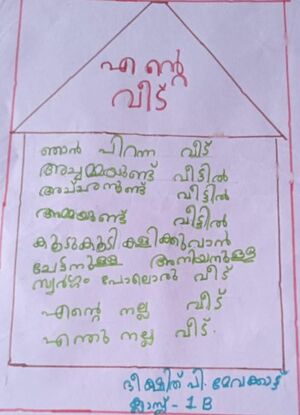 എന്റെ
വീട്
ഞാൻ പിറന്ന വീട്
അച്ഛമ്മയുണ്ട് വീട്ടിൽ
അച്ഛനുണ്ട് വീട്ടിൽ
അമ്മയുണ്ട് വീട്ടിൽ
കൂടുകൂടി കളിക്കുവാൻ
ചേട്ടനുള്ള അനിയനുള്ള
സ്വർഗ്ഗം പോലൊരു വീട്
എന്റെ നല്ല വീട്
എന്തു നല്ല വീട്.
ദീക്ഷിത് പി. മേവക്കാട്ട്
ക്ലാസ്സ് - 1 B